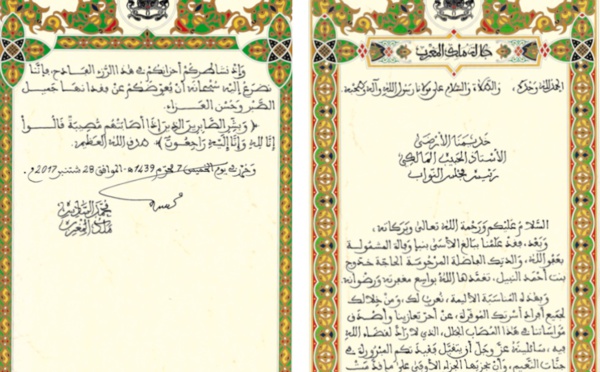 جلالة ملك المغرب
الحمد لله وحده، والصلاة والسلام على مولانا رسول الله وآله وصحبه
خديمنا الأرضى
الأستاذ الحبيب المالكي
رئيس مجلس النواب
السلام عليكم ورحمة الله تعالى وبركاته،
وبعد، فقد علمنا ببالغ الأسى بنبإ وفاة المشمولة
بعفو الله، والدتك الفاضلة المرحومة الحاجة خدوج
بنت أحمد النبيل، تغمدها الله بواسع مغفرته ورضوانه.
وبهذه المناسبة الأليمة، نعرب لك، ومن خلالك
لجميع أفراد أسرتك الموقرة، عن أحر تعازينا وأصدق
مواساتنا في هذا المصاب الجلل، الذي لا راد لقضاء الله
فيه، سائلينه عز وجل أن يتقبل فقيدتكم المبرورة في
جنات النعيم، وأن يجزيها الجزاء الأوفى على ما قدمت
وإذ نشاطركم أحزانكم في هذا الرزء الفادح، فإننا
نضرع إليه سبحانه أن يعوضكم عن فقدانها جميل
الصبر وحسن العزاء.
﴿ وبشر الصابرين الذين إذا أصابتهم مصيبة قالوا
إنا لله وإنا إليه راجعون ﴾ صدق الله العظيم.
وحرر في يوم الخميس 7 محرم 1439 هـ الموافق 28 شتنبر 2017 م.
محمد السادس
ملك المغرب